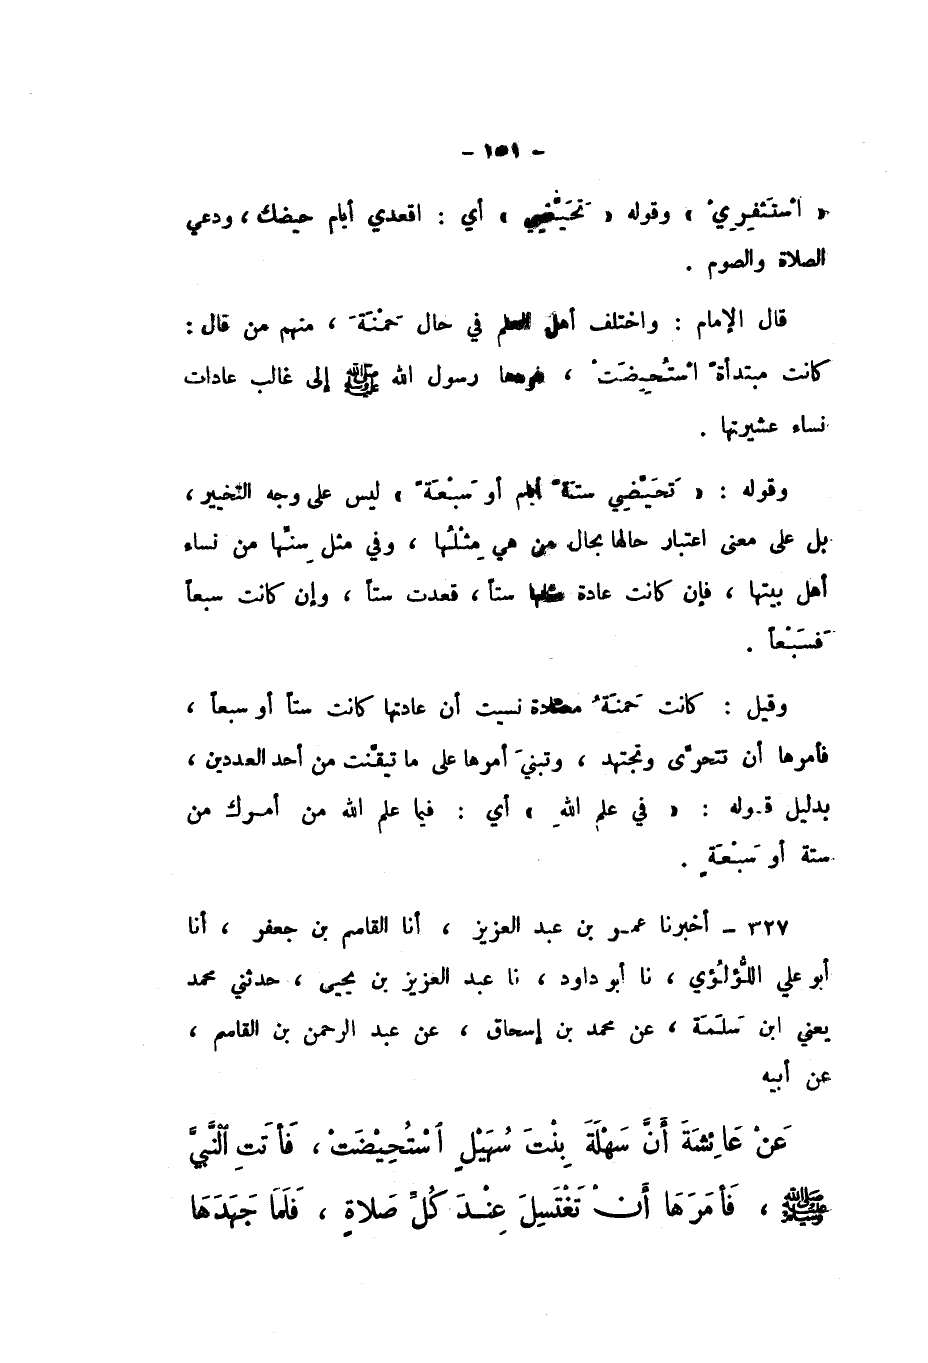 - ١٥١ -
« اسْتَثْفِرِيْ » وقوله « تَحَيَّضِي » أي : اقعدي أيام حيضك ، ودعي
الصلاة والصوم .
قال الإمام : واختلف أهل العلم في حال حَمْنَةَ ، منهم من قال :
كانت مبتدأةً اسْتُحِيضَتْ ، فردها رسول الله ﷺ إلى غالب عادات
نساء عشيرتها .
وقوله : « تَحَيَّضِي ستةَ أيام أو سَبْعَةً » ليس على وجه التخيير ،
بل على معنى اعتبار حالها بحال من هي مِثْلُها ، وفي مثل سِنِّها من نساء
أهل بيتها ، فإن كانت عادة مثلها ستاً ، قعدت ستاً ، وإن كانت سبعاً
فَسَبْعاً .
وقيل : كانت حَمنةُ معتادة نسيت أن عادتها كانت ستاً أو سبعاً ،
فأمرها أن تتحرّى وتجتهد ، وتبنيَ أمرها على ما تيقّنت من أحد العددين ،
بدليل قوله : « في علمِ اللهِ » أي : فيما علم الله من أمرك من
ستة أو سَبْعَةٍ .
٣٢٧ - أخبرنا عمر بن عبد العزيز ، أنا القاسم بن جعفر ، أنا
أبو علي اللُّؤلُؤي ، نا أبو داود ، نا عبد العزيز بن يحيى ، حدثني محمد
يعني ابن سَلَمَة ، عن محمد بن إسحاق ، عن عبد الرحمن بن القاسم ،
عن أبيه
عَنْ عَائِشَةَ أَنَّ سَهْلَةَ بِنْتَ سُهَيْلٍ ٱسْتُحِيْضَتْ ، فَأَتَتِ ٱلنَّبِيَّ
ﷺ ، فَأَمَرَهَا أَنْ تَغْتَسِلَ عِنْدَ كُلِّ صَلاةٍ ، فَلَمَّا جَهَدَهَا